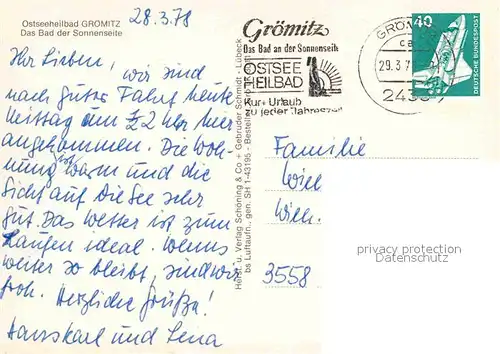 Ostseeheilbad GRÖMITZ
Das Bad der Sonnenseite
28.3.78
Ihr Lieben, wir sind
nach guter Fahrt heute
Mittag um 1/2 2 Uhr hier
angekommen. Die Woh-
nung ist warm und die
Sicht auf die See sehr
gut. Das Wetter ist zum
Laufen ideal. Wenns
weiter so bleibt, sind wir
froh. Herzliche Grüße!
Hanskarl und Lena
Herst. u. Verlag Schöning & Co + Gebrüder Schmidt - Lübeck
bs Luftaufn., gen. SH 1-43195 - Bestell
Grömitz
Das Bad an der Sonnenseite
OSTSEE
HEILBAD
Kur + Urlaub
zu jeder Jahreszeit
GRÖM
ca
29.3.7
243
40
DEUTSCHE BUNDESPOST
Familie
Will
Will
3558
privacy protection
Datenschutz